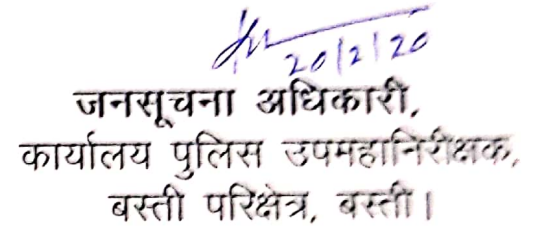 20/2/20
जनसूचना अधिकारी,
कार्यालय पुलिस उपमहानिरीक्षक,
बस्ती परिक्षेत्र, बस्ती।